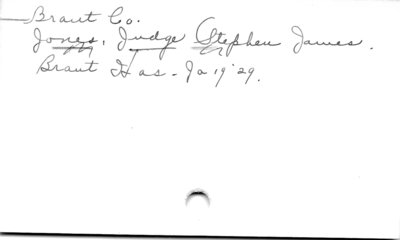 Brant Co.
Jones, Judge Stephen James.
Brant Has - Ja 19 '29.